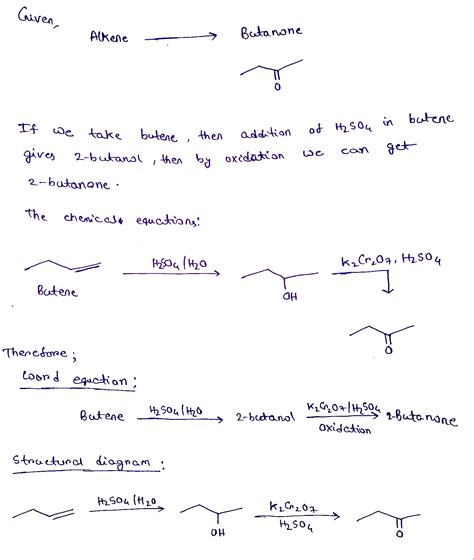 Given,
Alkene → Butanone
O
If we take butene, then addition of H2SO4 in butene
gives 2-butanol, then by oxidation we can get
2-butanone.
The chemical equations:
H2SO4/H2O K2Cr2O7, H2SO4
Butene OH
O
Therefore;
Word equation;
Butene H2SO4/H2O → 2-butanol K2Cr2O7/H2SO4 Oxidation → 2-Butanone
Structural diagram:
H2SO4/H2O K2Cr2O7
H2SO4
OH O